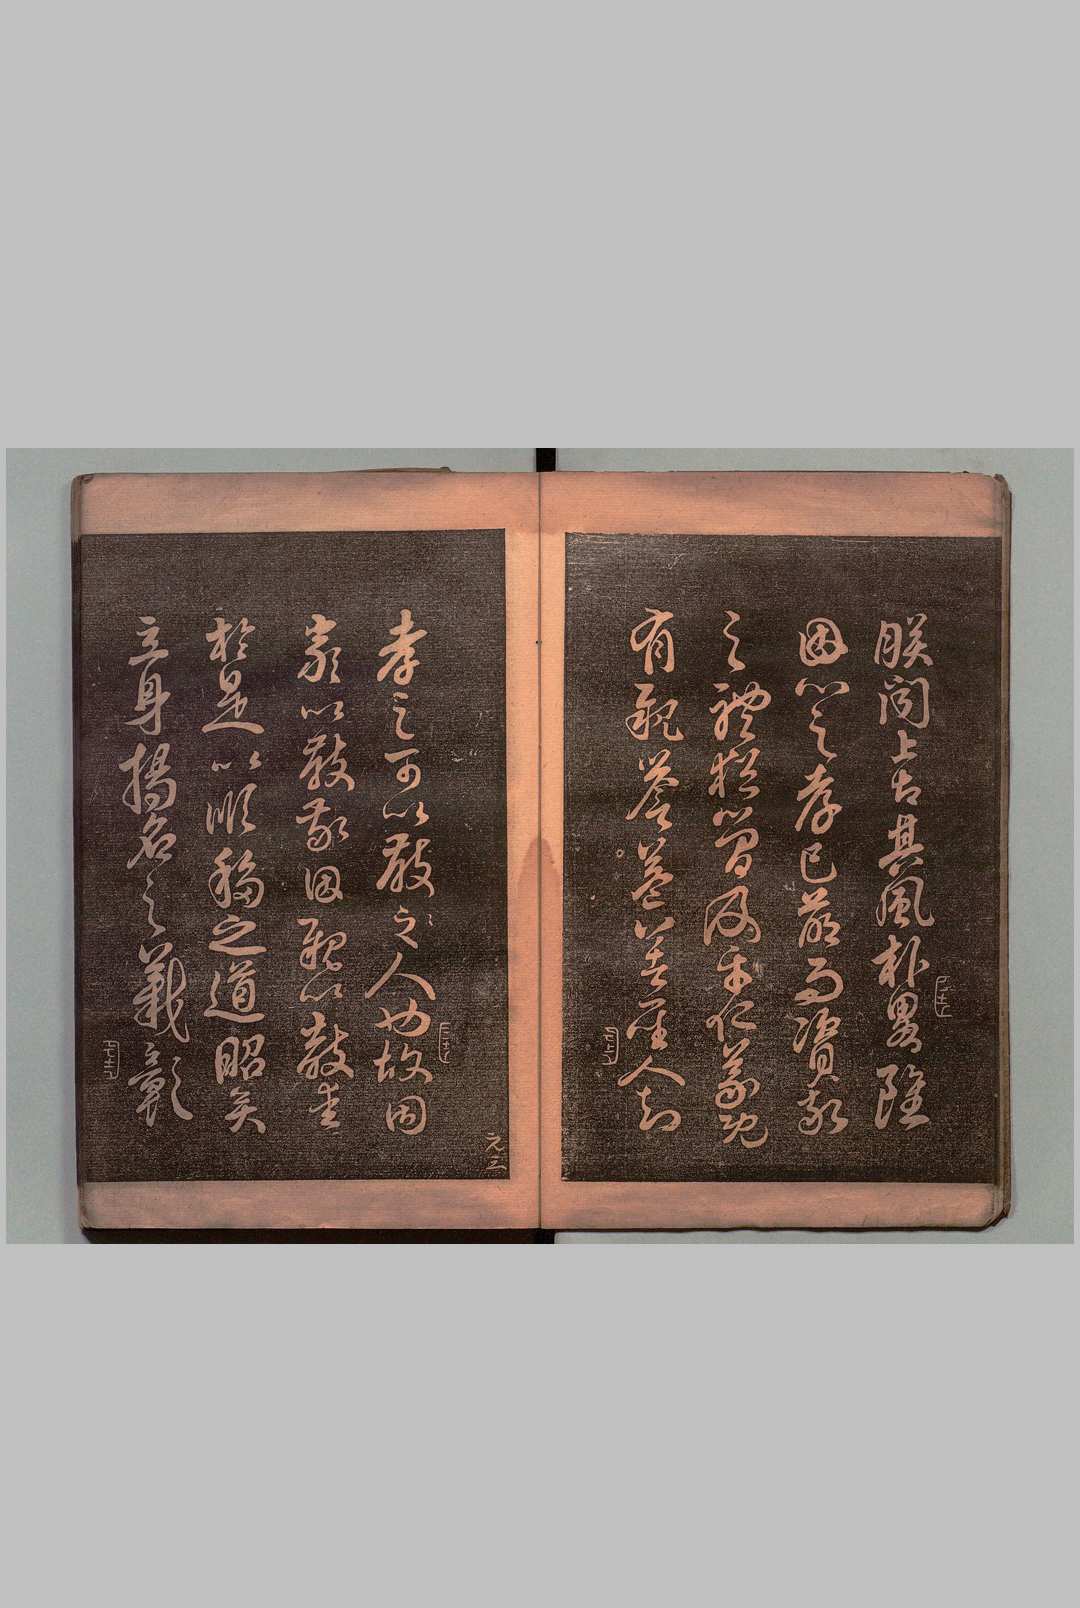 朕聞上古其風朴畧雖
因心之孝已萌而資敬
之禮猶簡及乎仁義既
有親譽益著聖人知
孝之可以教之人也故因
嚴以教敬因親以教愛
於是以順移之道昭矣
立身揚名之義彰
元三